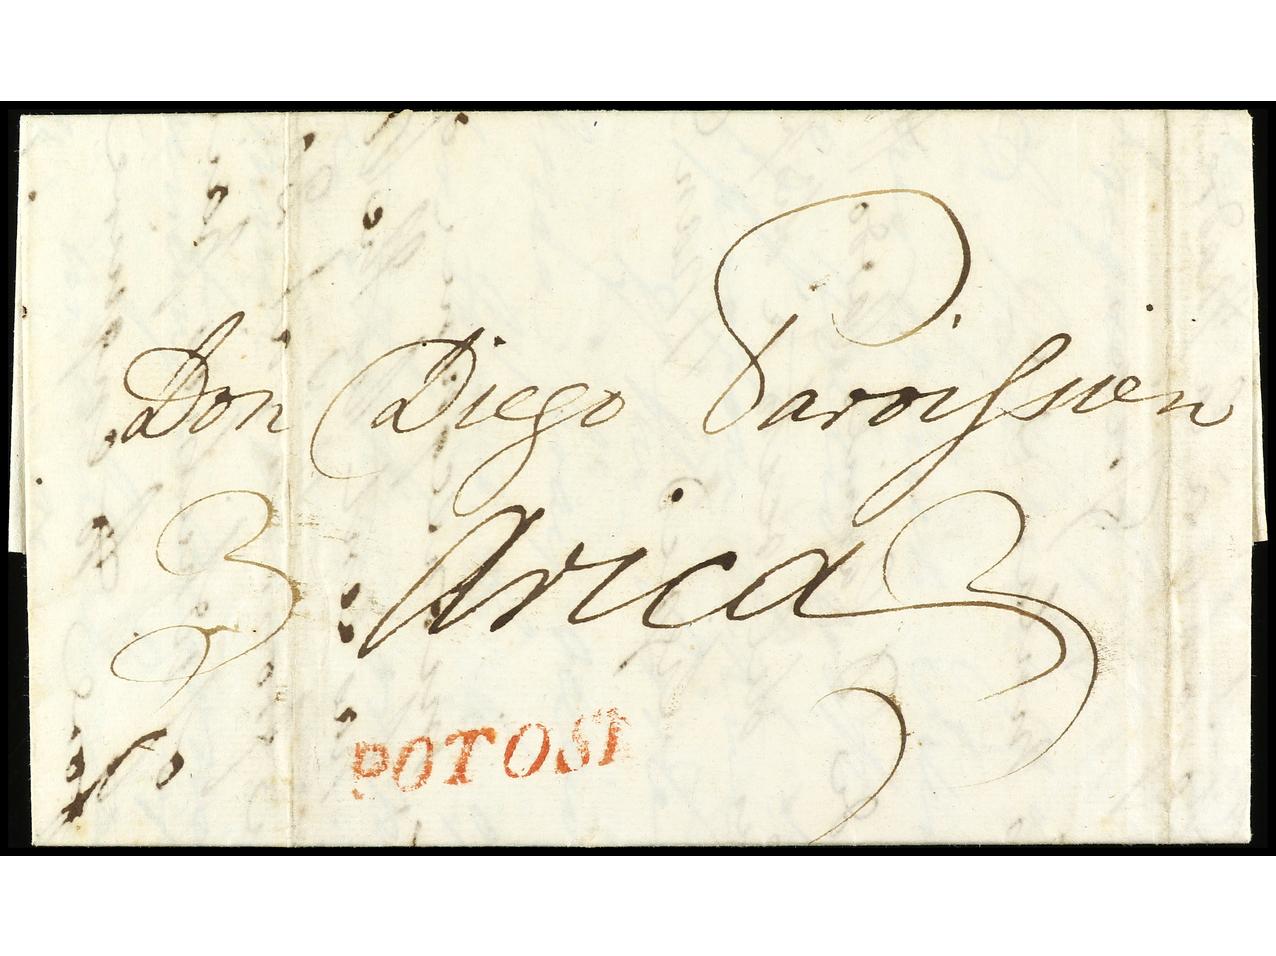 Don Diego Paroissien
Arica
POTOSI